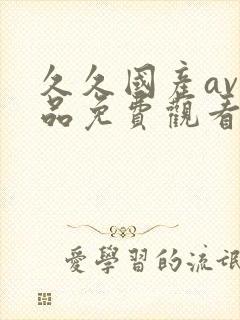 久久國產av
品免費觀看
愛學習的流氓